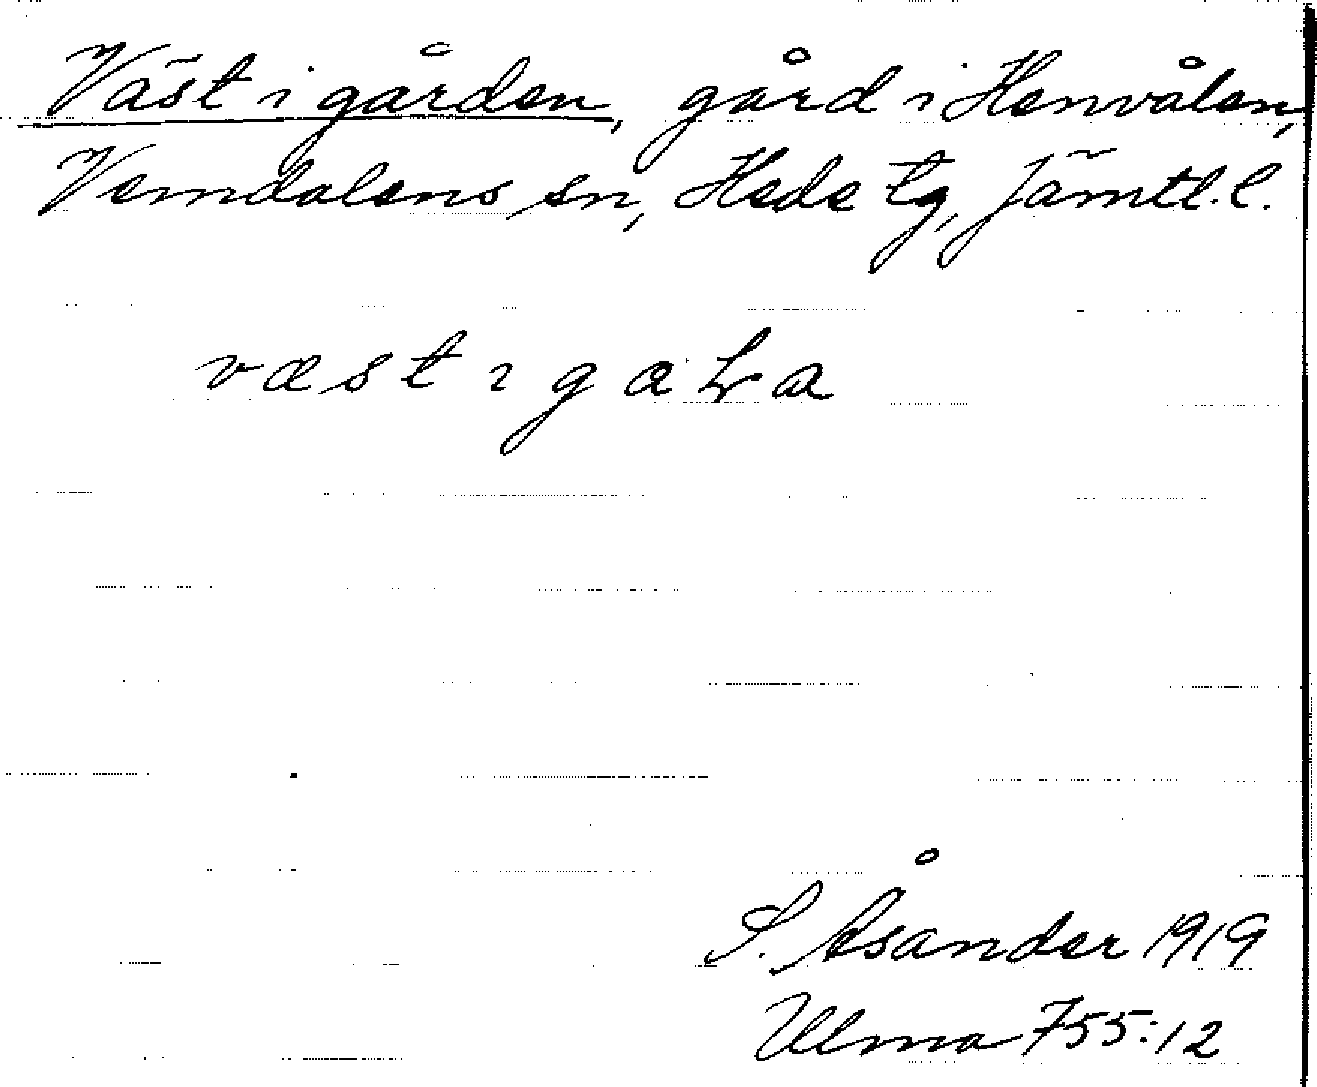 Väst i gården, gård i Henvålen,
Vemdalens sn, Hede tg, Jämtl. l.
S. Åsander 1919
Ulma 755:12